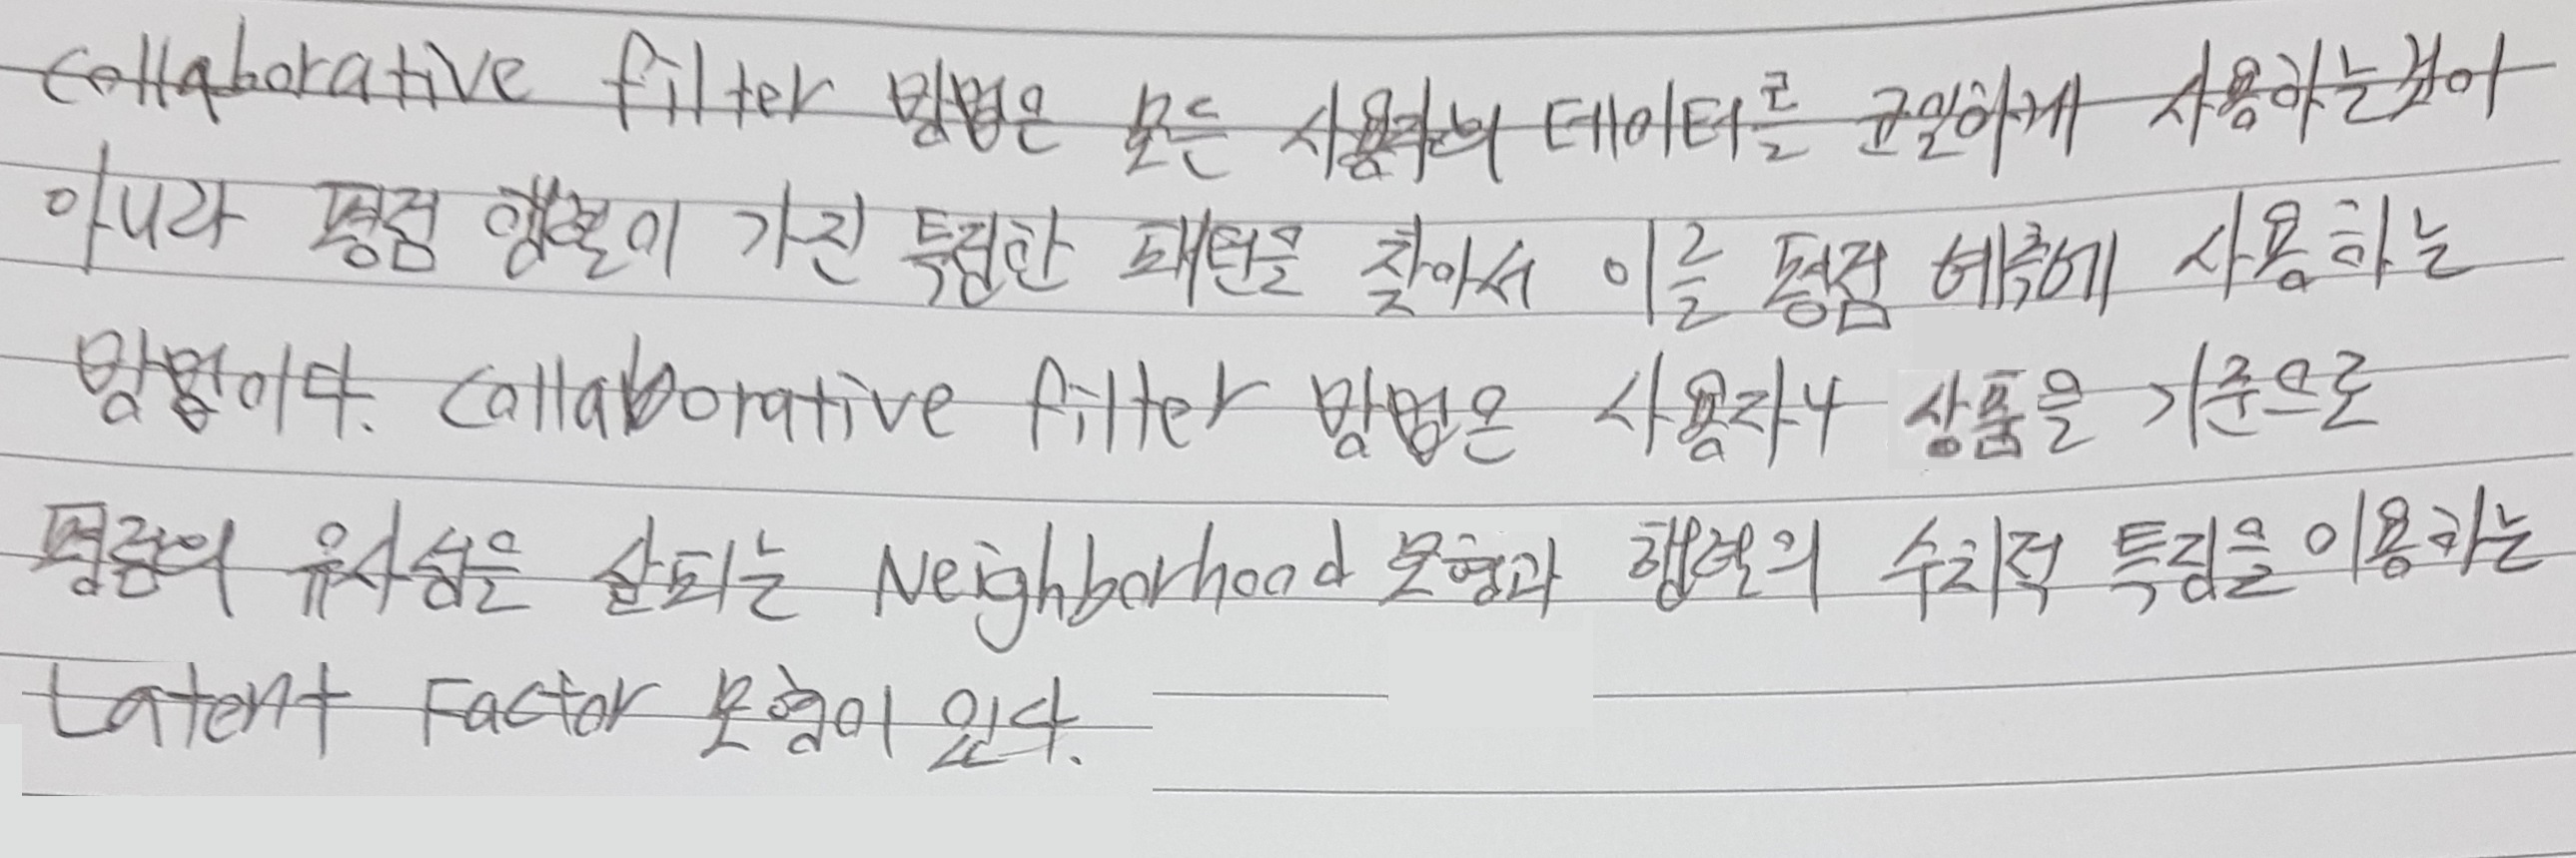 Collaborative filter 방법은 모든 사용자의 데이터를 균일하게 사용하는것이
아니라 평점 행렬이 가진 특징한 패턴을 찾아서 이를 평점 예측에 사용하는
방법이다. Collaborative filter 방법은 사용자나 상품을 기준으로
평점의 유사성을 살피는 Neighborhood 모형과 행렬의 수치적 특징을 이용하는
Latent Factor 모형이 있다.